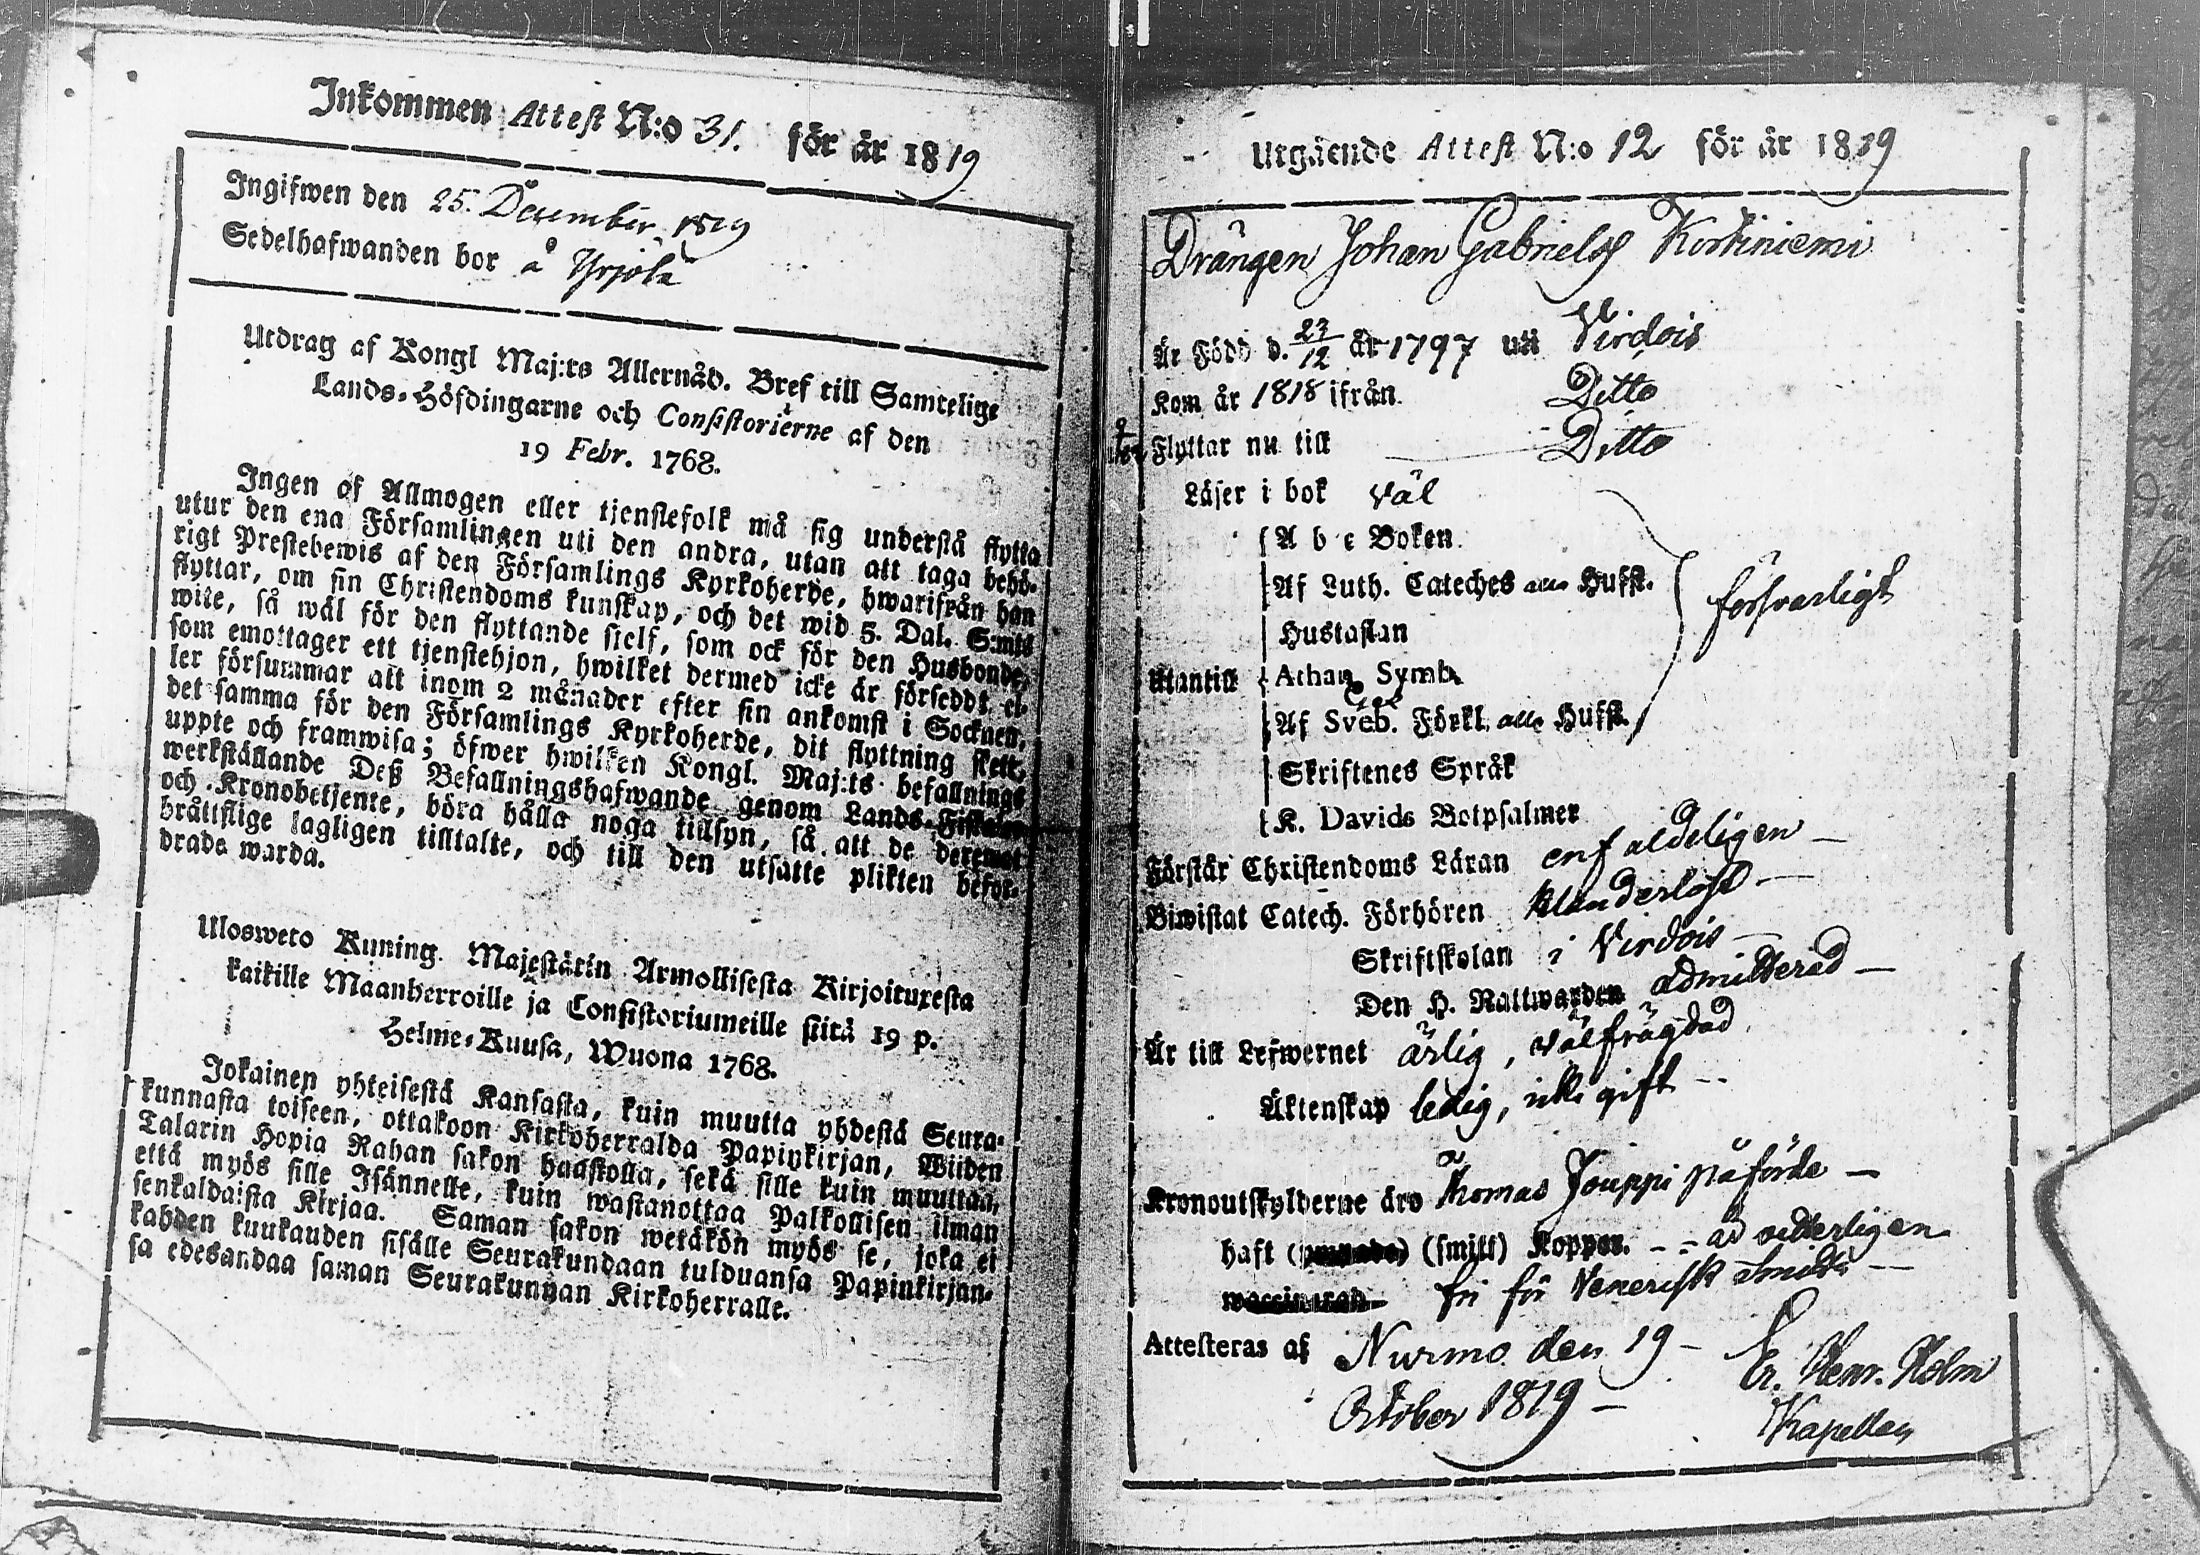 Inkommen Attest N:o 31. för år 1819
Ingifwen den 25. December 1819
Sedelhafwanden bor å Yrjölä
Utdrag af Kongl Maj:ts Allernåd. Bref till Samtelige
Lands-Höfdingarne och Consistorierne af den
19 Febr. 1768.
Ingen af Allmogen eller tjenstefolk må sig understå flytta
utur den ena Församlingen uti den andra, utan att taga behö-
rigt Prestebewis af den Församlings Kyrkoherde, hwarifrån han
flyttar, om sin Christendoms kunskap, och det wid 5. Dal. S:mts
wite, så wäl för den flyttande sielf, som ock för den Husbonde,
som emottager ett tjenstehjon, hwilket dermed icke är försedt, el-
ler försummar att inom 2 månader efter sin ankomst i Socknen,
det samma för den Församlings Kyrkoherde, dit flyttning skett,
uppte och framwisa; öfwer hwilken Kongl. Maj:ts befallnings
werkställande Deß Befallningshafwande genom Lands-Fiskaler
och Kronobetjente, böra hålla noga tillsyn, så att de deremot
bråttslige lagligen tilltalte, och till den utsatte plikten befor-
drade warda.
Ulosweto Kuning. Majestärin Armollisesta Kirjoituxesta
kaikille Maanherroille ja Consistoriumeille siitä 19 p.
Helme-Kuusa, Wuona 1768.
Jokainen yhteisestä Kansasta, kuin muutta yhdestä Seura-
kunnasta toiseen, ottakoon Kirkoherralda Papinkirjan, Wiiden
Talarin Hopia Rahan sakon haastolla, sekä sille kuin muuttaa,
että myös sille Isännelle, kuin wastanottaa Palkollisen ilman
senkaldaista Kirjaa. Saman sakon wetäkön myös se, joka ei
kahden kuukauden sisälle Seurakundaan tulduansa Papinkirjan-
sa edesandaa saman Seurakunnan Kirkoherralle.
Utgående Attest N:o 12 för år 1819
Drängen Johan Gabrielss Kortiniemi
Är Född d. 23/12 år 1797 uti Virdois
Kom år 1818 ifrån Ditto
Flyttar nu till Ditto
Läser i bok väl
A b c Boken
Af Luth. Cateches alla Hufst.
Hustaflan
Utantill Athan. Symb.
Af Sveb. Förkl. alla Hufst. försvarligt
Skriftenes Språk
K. Davids Botpsalmer
Förstår Christendoms Läran enfaldeligen
Biwistat Catech. Förhören klanderlöst
Skriftskolan i Virdois
Den H. Nattwarden admitterad
Är till Lefwernet ärlig, välfrägdad
Äktenskap ledig, icke gift
Kronoutskylderne äro å Thomas Jouppi påförde
haft (smitt) Koppor.
fri för Venerisk Smitta
Attesteras af Nurmo den 19
October 1819
Er. Henr. Holm
Kapellan